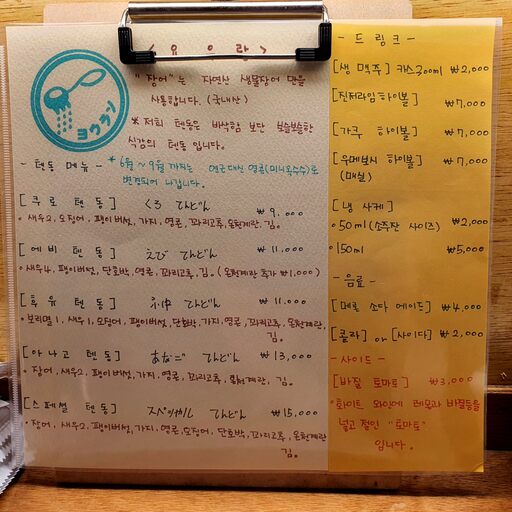 < 요 유 락 >
ヨウラン
"장어"는 자연산 생물장어 만을
사용합니다. (국내산)
* 저희 텐동은 바삭함 보단 보슬보슬한
식감의 텐동 입니다.
- 텐동 메뉴 -
* 6월 ~ 9월 까지는 연근대신 영콘(미니옥수수)로
변경되어 나갑니다.
[쿠로 텐동] くろ てんどん ₩9,000
• 새우2, 오징어, 팽이버섯, 가지, 영콘, 꽈리고추, 온천계란, 김.
[에비 텐동] えび てんどん ₩11,000
• 새우4, 팽이버섯, 단호박, 영콘, 꽈리고추, 김. (온천계란 추가 ₩1,000)
[후유 텐동] てんどん ₩11,000
• 보리멸1, 새우1, 오징어, 팽이버섯, 단호박, 가지, 영콘, 꽈리고추, 온천계란,
김.
[아나고 텐동] あなご てんどん ₩13,000
• 장어, 새우2, 팽이버섯, 가지, 영콘, 꽈리고추, 온천계란, 김.
[스페셜 텐동] スペシャル てんどん ₩15,000
• 장어, 새우2, 팽이버섯, 가지, 영콘, 오징어, 단호박, 꽈리고추, 온천계란
김.
- 드 링 크 -
[생 맥주] 카스 300ml ₩2,000
[진저라임 하이볼] ₩7,000
[가쿠 하이볼] ₩7,000
[우메보시 하이볼] ₩7,000
(매실)
[냉 사케]
• 50ml (소주잔 사이즈) ₩2,000
• 150ml ₩5,000
- 음료 -
[메론 소다 에이드] ₩4,000
[콜라] or [사이다] ₩2,000
- 사이드 -
[바질 토마토] ₩3,000
• 화이트 와인에 레몬과 바질등을
넣고 절인 "토마토"
입니다.